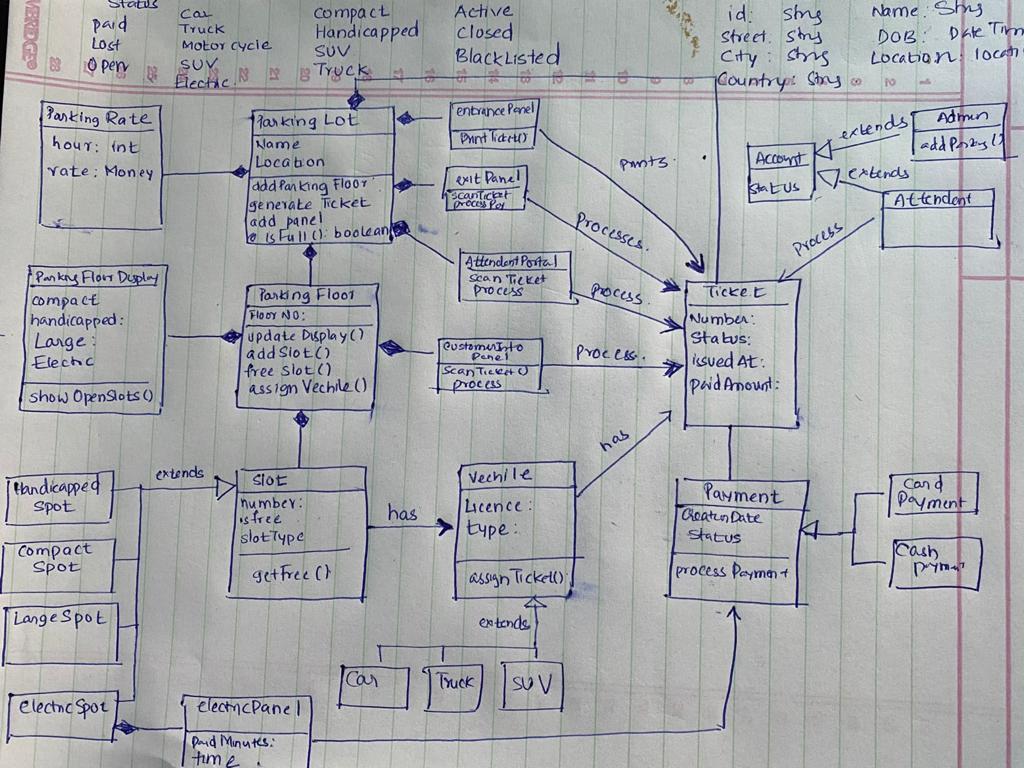 Status
paid
Lost
Open
Car
Truck
Motorcycle
SUV
Electric
Compact
Handicapped
SUV
Truck
Active
Closed
BlackListed
id: Strng
street: Strng
City: Strng
Country: Strng
Name: Strng
DOB: Date Tim
Location: locati
Parking Rate
hour: int
rate: Money
Parking Lot
Name
Location
addParking Floor
generate Ticket
add panel
isFull(): boolean
entrancePanel
PrintTicket()
exitPanel
scanTicket
AttendentPortal
Scan Ticket
process
prints
Processes.
process
process.
Account
status
extends
extends
Admin
Attendent
process
Parking Floor Display
compact
handicapped:
Large:
Electric
showOpenSlots()
Parking Floor
Floor NO:
update Display()
addSlot()
free Slot()
assign Vechile()
CustomerInfo
Panel
ScanTicket()
process
Ticket
Number:
Status:
issuedAt:
paidAmount:
Handicapped
Spot
Compact
Spot
LargeSpot
electricSpot
extends
Slot
number:
isfree
slotType
getFree()
has
Vechile
Licence:
type:
assignTicket()
has
extends
Car
Truck
SUV
Payment
CreationDate
Status
processPayment
Card
Payment
Cash
Payment
electricPanel
paidMinutes:
time